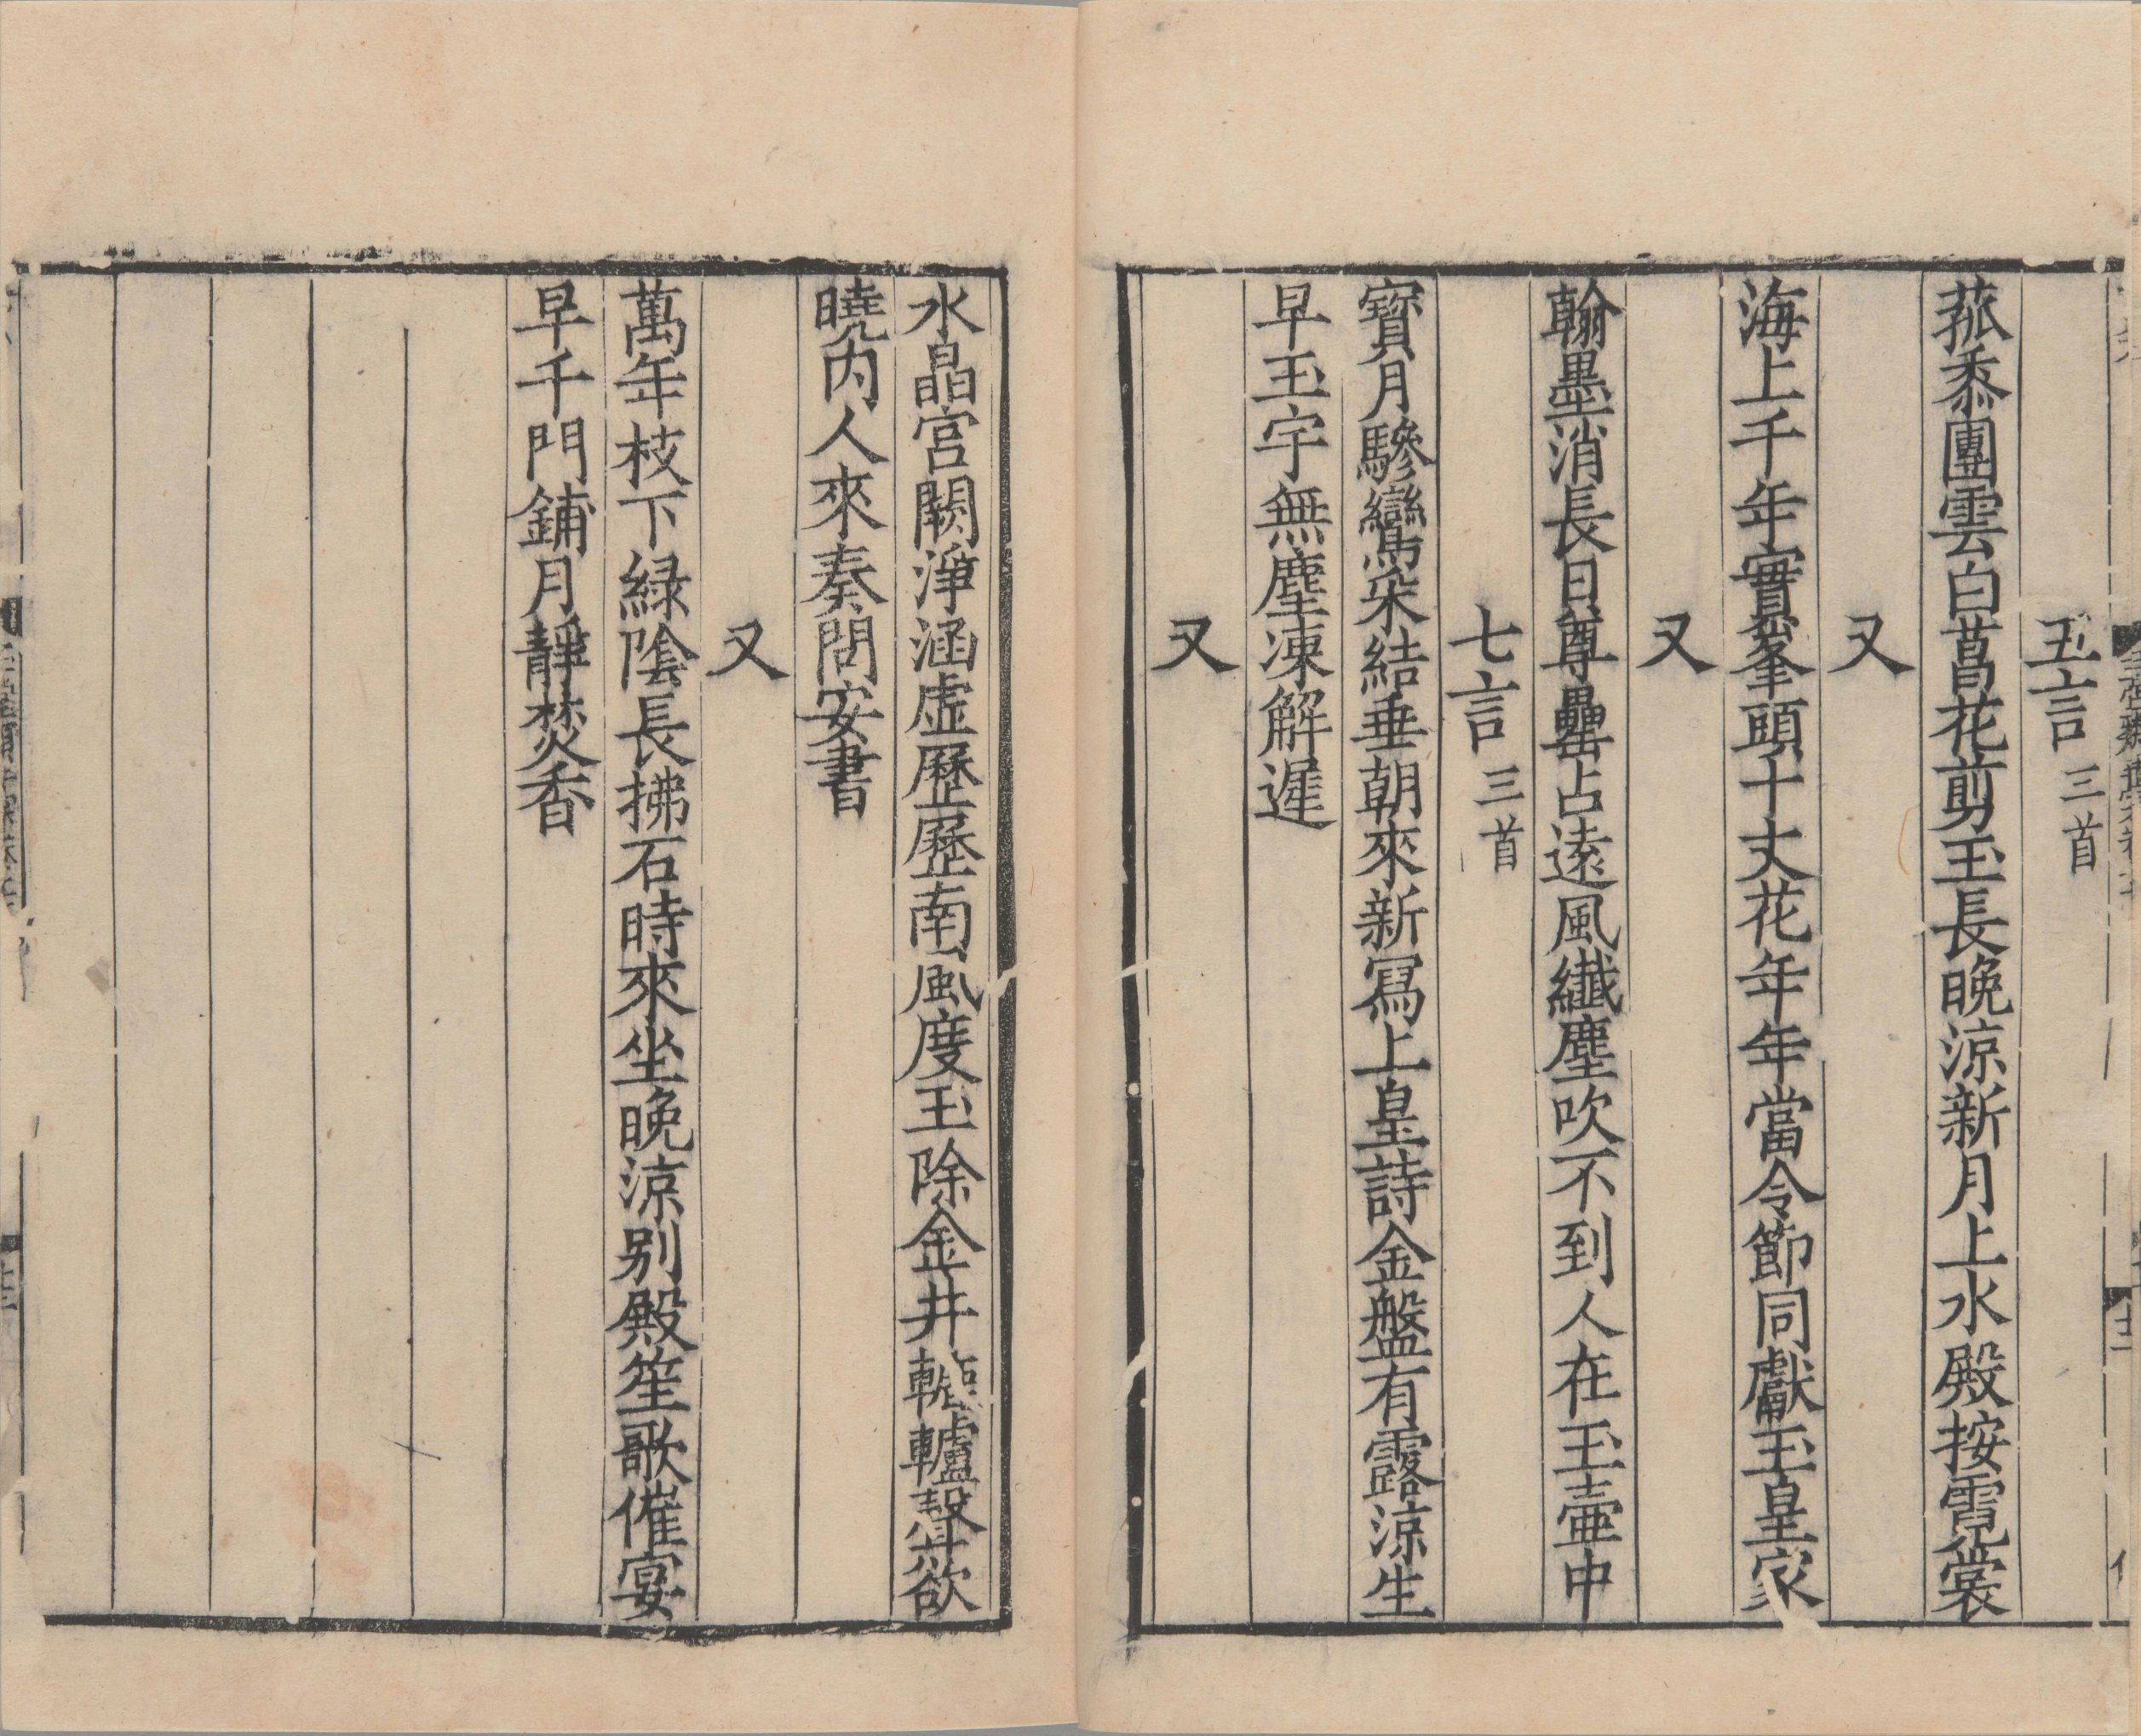 五言三首
菰黍團雲白菖花剪玉長晚涼新月上水殿按霓裳
又
海上千年實峯頭十丈花年年當令節同獻玉皇家
又
翰墨消長日尊罍占遠風纖塵吹不到人在玉壷中
七言三首
寶月驂鸞朵結垂朝來新寫上皇詩金盤有露涼生
早玉宇無塵凍解遲
又
水晶宮闕淨涵虛歷歷南風度玉除金井轆轤聲欲
曉內人來奏問安書
又
萬年枝下綠陰長拂石時來坐晚涼別殿笙歌催宴
早千門鋪月靜焚香